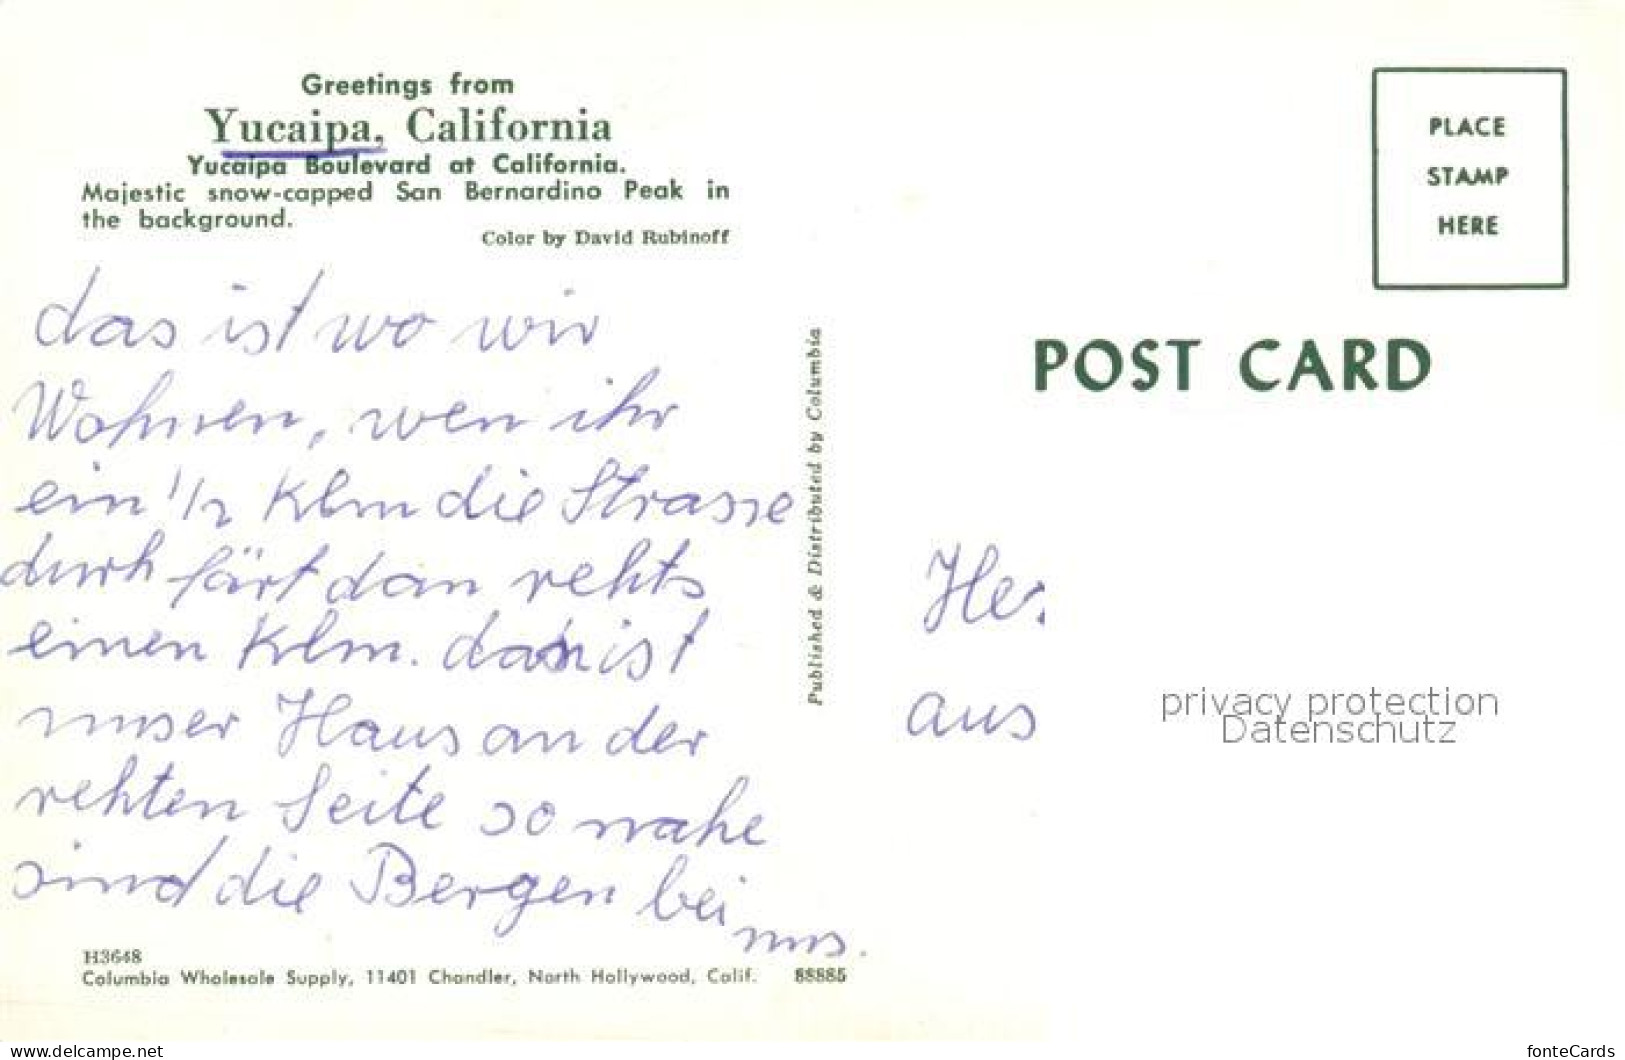 Greetings from
Yucaipa, California
Yucaipa Boulevard at California.
Majestic snow-capped San Bernardino Peak in
the background.
Color by David Rubinoff
das ist wo wir
Wohnen, wen ihr
ein 1/2 Klm die Strasse
durh färt dan rehts
einen Klm. dan ist
unser Haus an der
rehten Seite so nahe
sind die Bergen bei
uns.
H3648
Columbia Wholesale Supply, 11401 Chandler, North Hollywood, Calif. 88885
Published & Distributed by Columbia
PLACE
STAMP
HERE
POST CARD
He.
aus
privacy protection
Datenschutz
www.delcampe.net
fonteCards